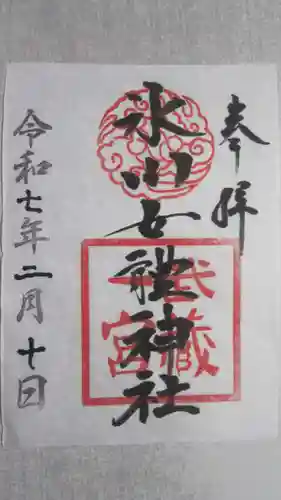 奉拝
氷川女體神社
武蔵
一宮
令和七年二月十日